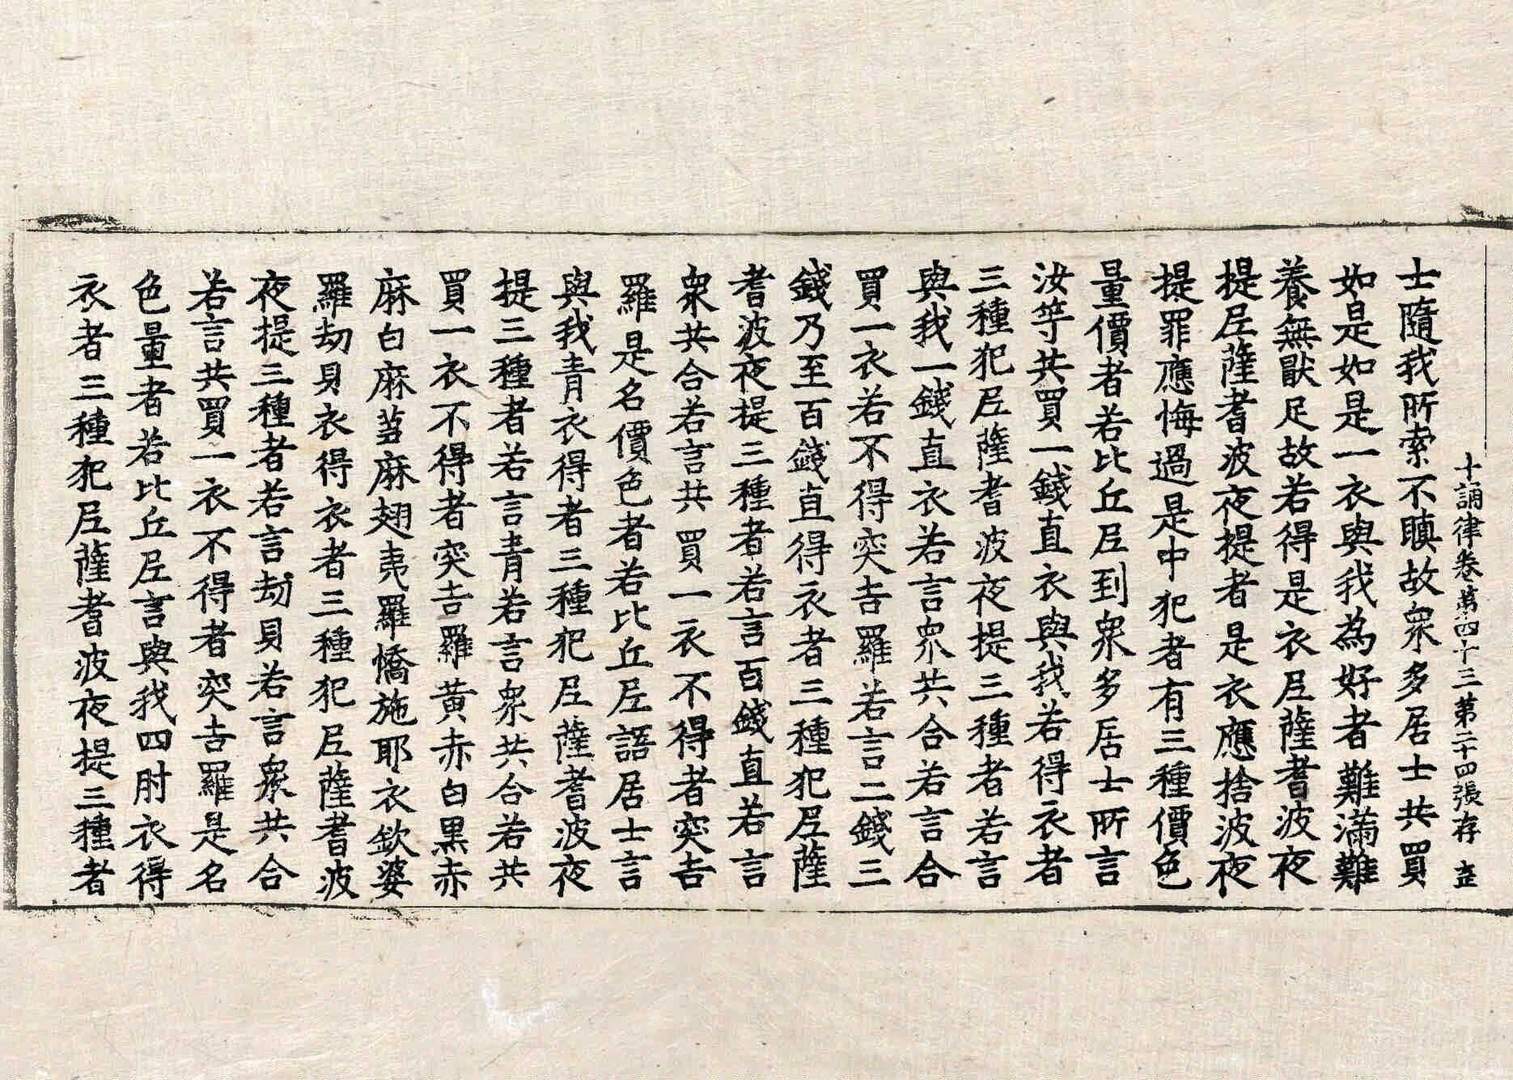 十誦律卷第四十三第二十四張存
士隨我所索不瞋故衆多居士共買
如是如是一衣與我為好者難滿難
養無猒足故若得是衣尼薩耆波夜
提尼薩耆波夜提者是衣應捨波夜
提罪應悔過是中犯者有三種價色
量價者若比丘尼到衆多居士所言
汝等共買一錢直衣與我若得衣者
三種犯尼薩耆波夜提三種者若言
與我一錢直衣若言衆共合若言合
買一衣若不得突吉羅若言二錢三
錢乃至百錢直得衣者三種犯尼薩
耆波夜提三種者若言百錢直若言
衆共合若言共買一衣不得者突吉
羅是名價色者若比丘尼語居士言
與我青衣得者三種犯尼薩耆波夜
提三種者若言青若言衆共合若共
買一衣不得者突吉羅黃赤白黑赤
麻白麻芻麻翅夷羅憍施耶衣欽婆
羅劫貝衣得衣者三種犯尼薩耆波
夜提三種者若言劫貝若言衆共合
若言共買一衣不得者突吉羅是名
色量者若比丘尼言與我四肘衣得
衣者三種犯尼薩耆波夜提三種者